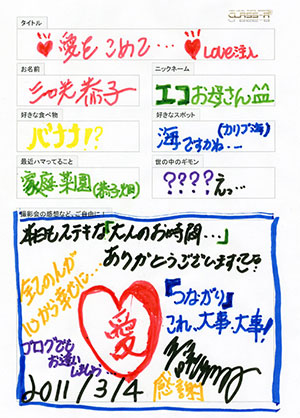 タイトル
愛をこめて… LOVE注入
お名前
三光恭子
ニックネーム
エコお母さん
好きな食べ物
バナナ!?
好きなスポット
海ですかね.– (カリブ海)
最近ハマってること
家庭菜園(恭子畑)
世の中のギモン
????えっ…
撮影会の感想など、ご自由に!
本日もステキな「大人のお時間…」
ありがとうございます
全ての人が
心から幸せに…
愛
『つながり』
これ、大事、大事!
ブログでも
お逢い
しましょう…
感謝
2011/3/4